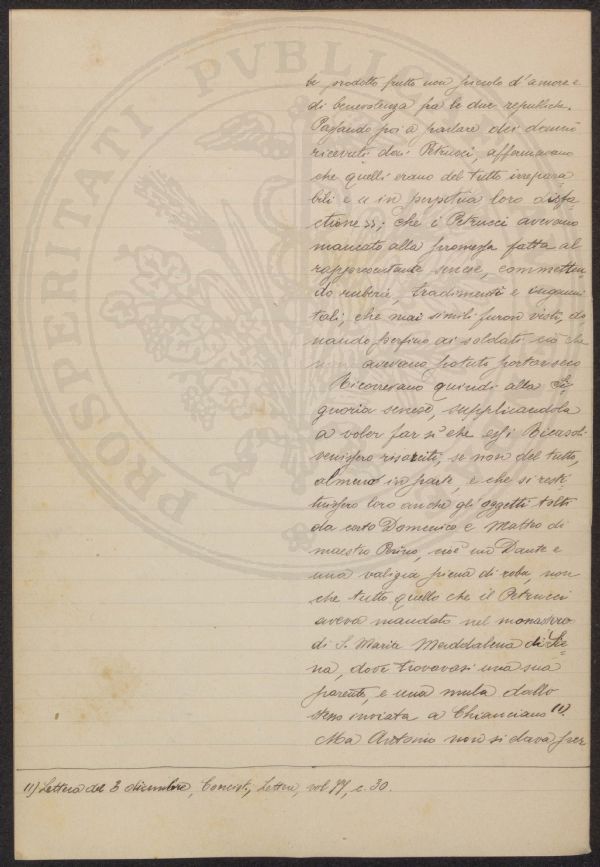 be prodotto frutto non piccolo d'amore e
di benevolenza fra le due repubbliche.
Passando poi a parlare dei danni
ricevuti dai Petrucci, affermavano
che quelli erano del tutto irrepara
bili e « in perpetua loro disfa
ctione »; che i Petrucci avevano
mancato alla promessa fatta al
rappresentante senese, commetten
do ruberie, tradimenti e inganni
tali, che mai simili furon visti, do
nando perfino ai soldati ciò che
non avevano potuto portar seco
Ricorrevano quindi alla Si
gnoria senese, supplicandola
a voler far sì che essi Ricasoli
venissero risarciti, se non del tutto,
almeno in parte, e che si resti
tuissero loro anche gli oggetti tolti
da certo Domenico e Matteo di
maestro Perino, cioè un Dante e
una valigia piena di roba, non
che tutto quello che il Petrucci
aveva mandato nel monastero
di S. Maria Maddalena di Sie=
na, dove trovavasi una sua
parente, e una mula dallo
stesso inviata a Chianciano (1).
Ma Antonio non si dava per
(1) Lettera del 3 dicembre, Concist., Lettere, vol. , c. 30.
PROSPERITATI PVBLICAE